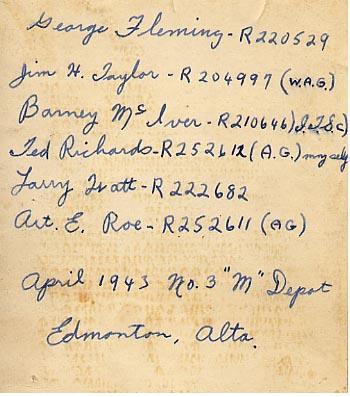 George Fleming - R220529
Jim H. Taylor - R204997 (W.A.G.)
Barney McIver - R210646) I.T.S.C)
Ted Richards - R252612 (A.G.) myself
Larry Watt - R222682
Art. E. Roe - R252611 (AG)
April 1943 No. 3 "M" Depot
Edmonton, Alta.